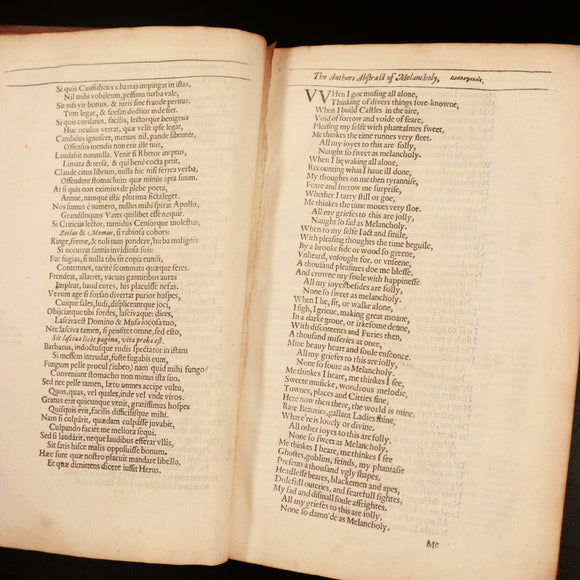 Si quis Causidicus chartas impingat in istas,
Nil mihi vobiscum, pessima turba vale,
Sit nisi vir bonus, & juris sine fraude peritus,
Tum legat, & forsan doctior inde siet.
Si quis cordatus, facilis, lectorque benignus
Huc oculos vertat, quæ velit ipse legat,
Candidus ignoscet, metuas nil, pande libenter,
Offensus mendis non erit ille tuis,
Laudabit nonnulla. Venit si Rhetor ineptus,
Limata & tersa, & qui bene cocta petit,
Claude citus librum, nulla hic nisi ferrea verba,
Offendent stomachum quæ minus apta suum.
At si quis non eximius de plebe poeta,
Annue, namque istic plurima ficta leget.
Nos sumus è numero, nullus mihi spirat Apollo,
Grandiloquus Vates quilibet esse nequit.
Si Criticus lector, tumidus Censorque molestus,
Zoilus & Momus, si rabiosa cohors:
Ringe, freme, & noli tum pandere, turba malignis
Si occurrat sannis invidiosa suis:
Fac fugias, si nulla tibi sit copia eundi,
Contemnes, tacitè scommata quæque feres.
Frendeat, allatret, vacuas gannitibus auras
Impleat, haud cures, his placuisse nefas.
Verum age si forsan divertat purior hospes,
Cuique sales, ludi, displiceantque joci,
Objiciatque tibi fordes, lascivaque: dices,
Lasciva est Domino & Musa jocosa tuo,
Nec lasciva tamen, si pensitet omne, sed esto,
Sit lasciva licet pagina, vita proba est.
Barbarus, indoctusque rudis spectator in istam
Si messem intrudat, fuste fugabis eum,
Fungum pelle procul (jubeo) nam quid mihi fungo?
Conveniunt stomacho non minus ista suo.
Sed nec pelle tamen, læto omnes accipe vultu,
Quos, quas, vel quales, inde vel unde viros.
Gratus erit quicunque venit, gratissimus hospes
Quisquis erit, facilis difficilisque mihi.
Nam si culpârit, quædam culpasse juvabit,
Culpando faciet me meliora sequi.
Sed si laudârit, neque laudibus efferar ullis,
Sit satis hisce malis opposuisse bonum.
Hæc sunt quæ nostro placuit mandare libello,
Et quæ dimittens dicere jussit Herus.
The Authors Abstract of Melancholy, Διαλογικῶς.
WHen I goe musing all alone,
Thinking of divers things fore-knowne,
When I build Castles in the aire,
Void of sorrow and voide of feare,
Pleasing my selfe with phantasmes sweet,
Me thinkes the time runnes very fleet.
All my ioyes to this are folly,
Naught so sweet as melancholy.
When I lie waking all alone,
Recounting what I haue ill done,
My thoughts on me then tyrannise,
Feare and sorrow me surprise,
Whether I tarry still or goe,
Me thinkes the time moues very sloe.
All my griefes to this are jolly,
Naught so sad as Melancholy.
When to my selfe I act and smile,
With pleasing thoughts the time beguile,
By a brooke side or wood so greene,
Vnheard, vnsought for, or vnseene,
A thousand pleasures doe me blesse,
And crowne my soule with happinesse.
All my ioyes besides are folly,
None so sweet as melancholy.
When I lie, sit, or walke alone,
I sigh, I grieue, making great moane,
In a darke groue, or irkesome denne,
With discontents and Furies then,
A thousand miseries at once,
Mine heavy heart and soule ensconce.
All my griefes to this are jolly,
None so soure as Melancholy.
Me thinkes I heare, me thinkes I see,
Sweete musicke, wondrous melodie,
Townes, places and Citties fine,
Here now then there, the world is mine,
Rare Beauties, gallant Ladies shine,
What e're is lovely or divine.
All other ioyes to this are folly,
None so sweet as Melancholy.
Me thinkes I heare, me thinkes I see
Ghostes, goblins, feinds, my phantasie
Presents a thousand vgly shapes,
Headlesse beares, blackemen and apes,
Dolefull outcries, and fearefull sightes,
My sad and dismall soule affrightes.
All my griefes to this are iolly,
None so damn'de as Melancholy.
Me